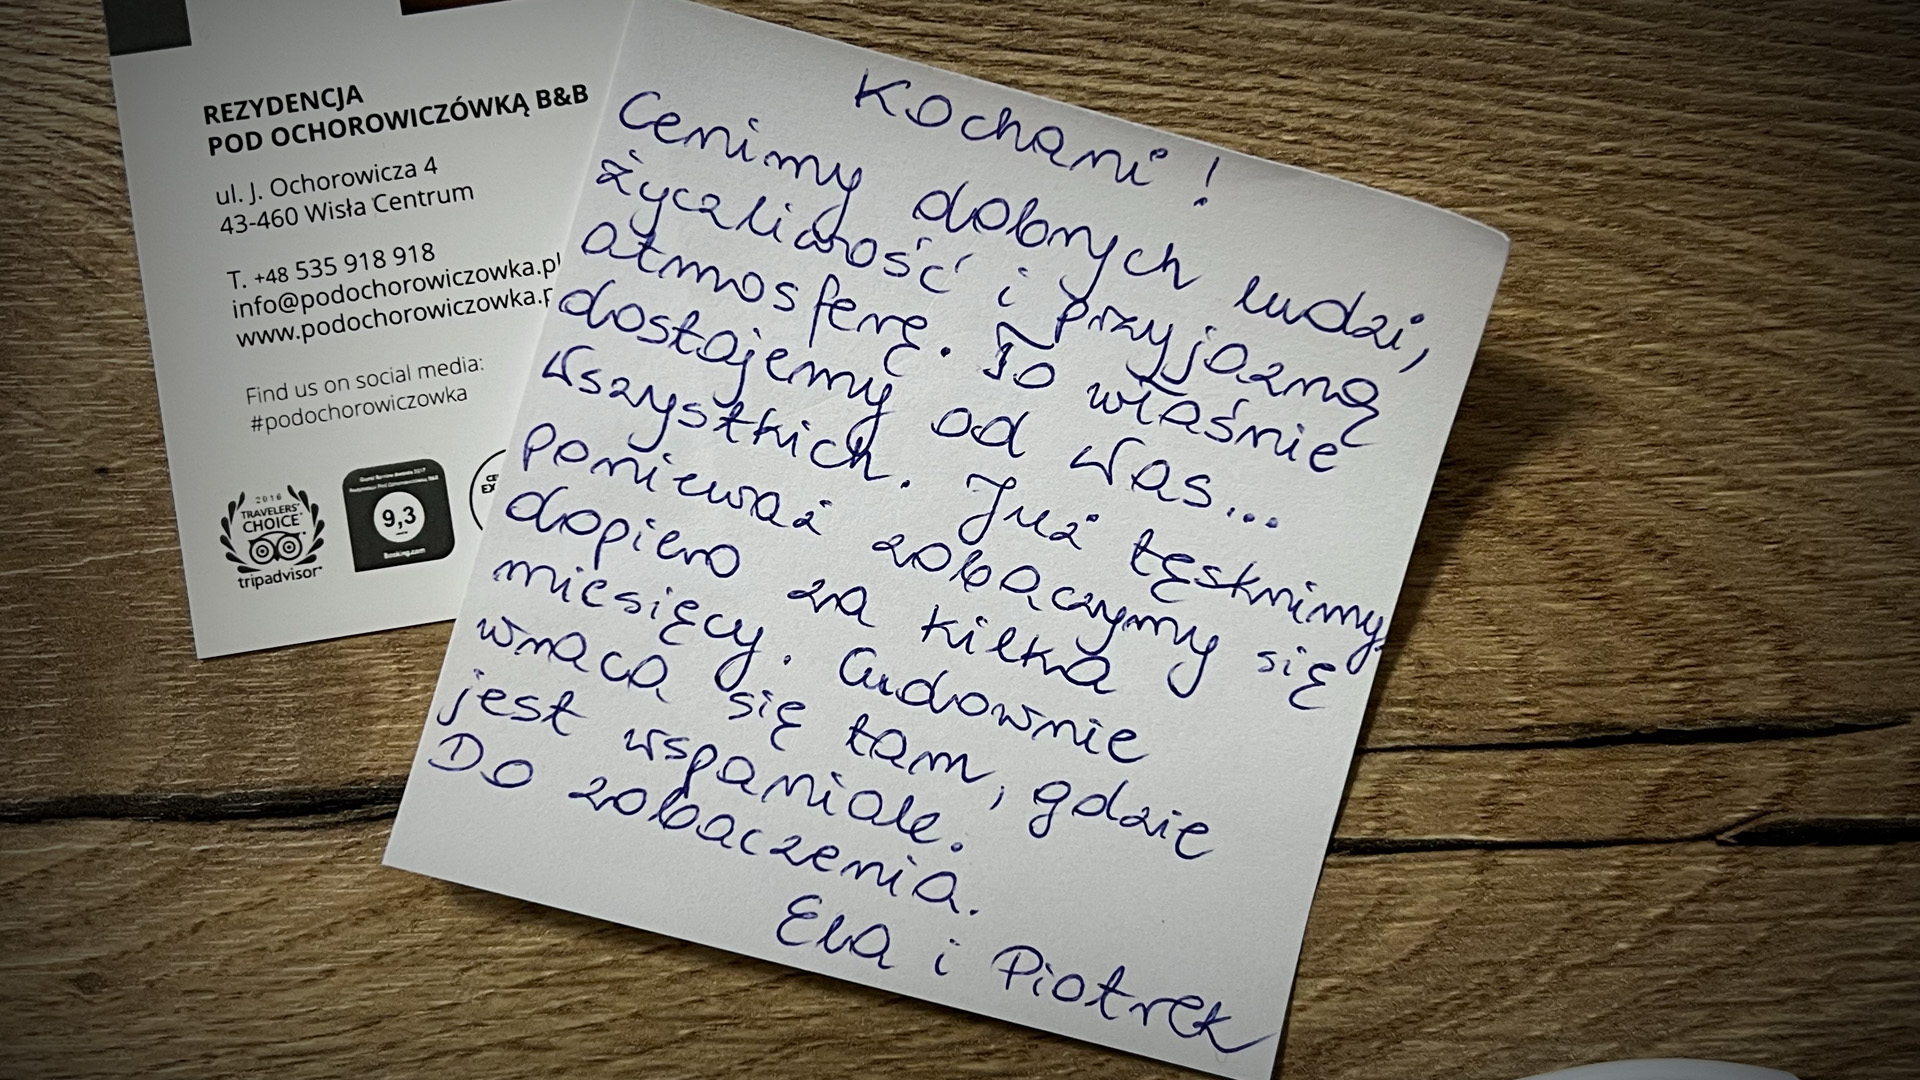 REZYDENCJA
POD OCHOROWICZÓWKĄ B&B
ul. J. Ochorowicza 4
43-460 Wisła Centrum
T. +48 535 918 918
info@podochorowiczowka.pl
www.podochorowiczowka.p
Find us on social media:
#podochorowiczowka
2016
TRAVELERS'
CHOICE
tripadvisor
9,3
Booking.com
CE
EX
Kochani!
Cenimy dobrych ludzi,
życzliwość i przyjazną
atmosferę. To właśnie
dostajemy od Was...
Wszystkich. Już tęsknimy,
ponieważ zobaczymy się
dopiero za kilka
miesięcy. Cudownie
wraca się tam, gdzie
jest wspaniale.
Do zobaczenia.
Ela i Piotrek